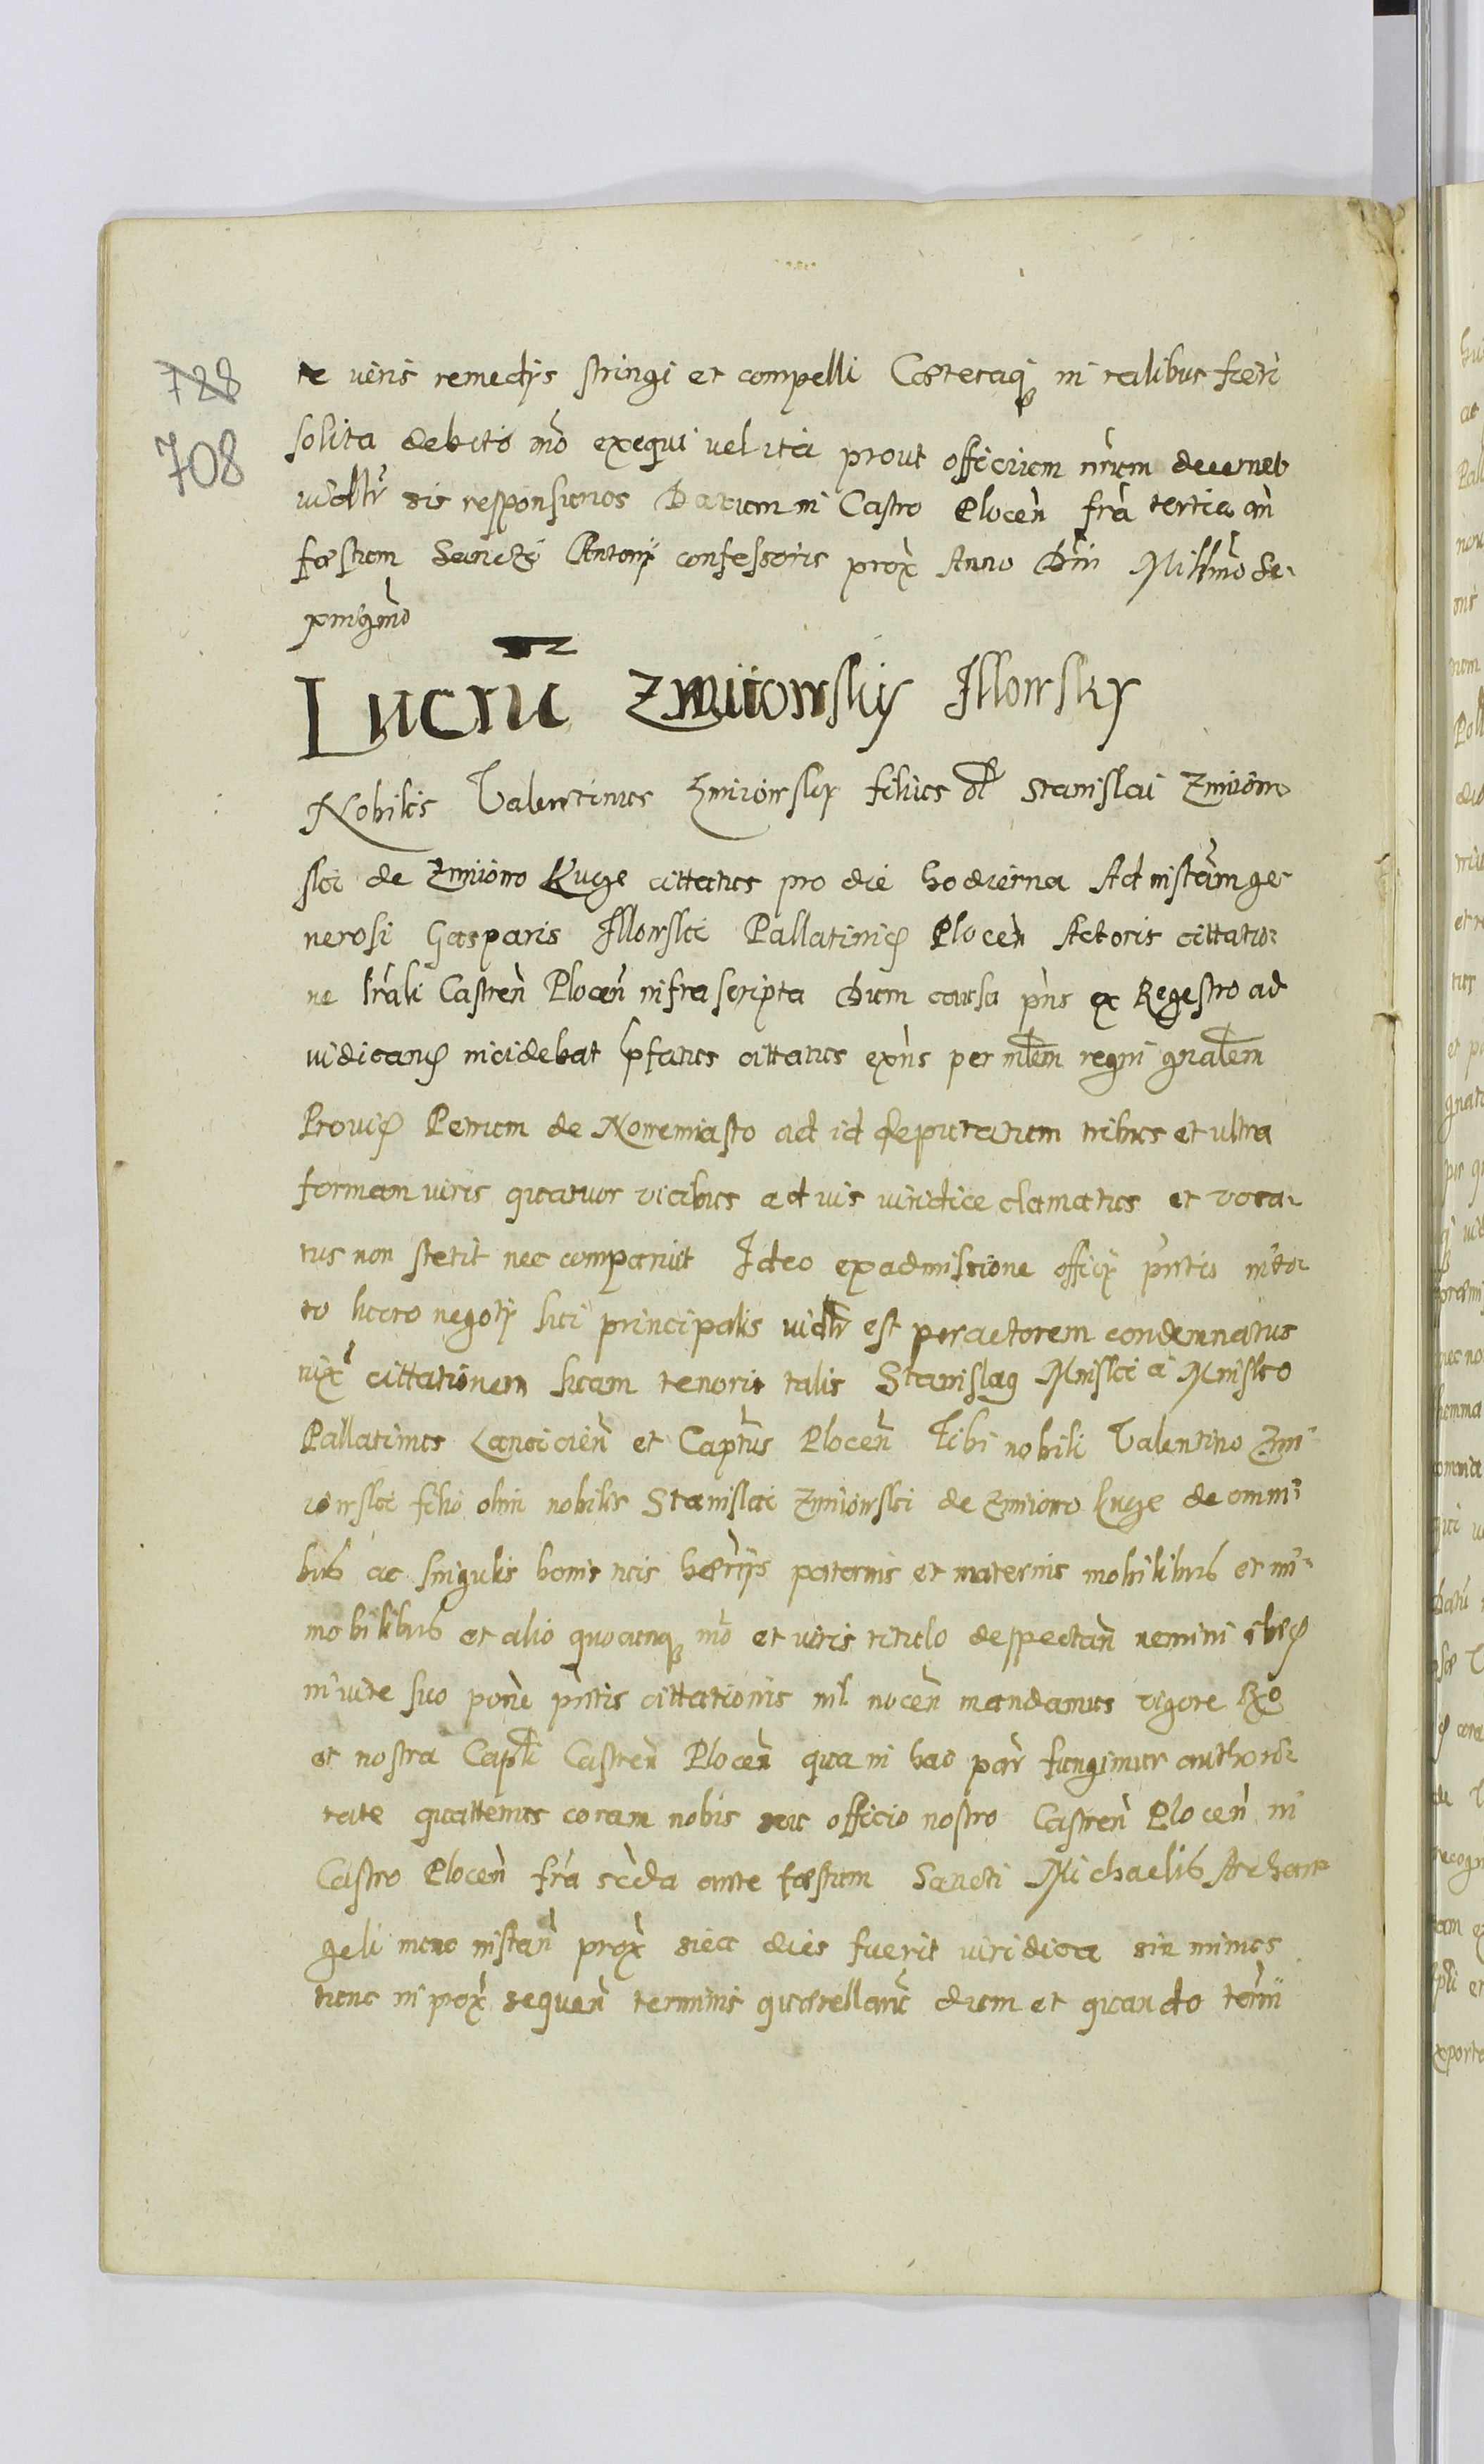 728
708
te viris remedys stringi et compelli Cœteraq in talibus fieri
solita debito mo exequi vel ita prout officium nrum decernet
iudltr sis responsurus Datum in Castro Plocen fra tertia an
fœstum Sancti Antonij confessoris prox Anno Dni Millmo Se-
xingmo
Lucru Zmiiowskij Illowsky
Nobilis Valentinus Zmiiowsky filius ol Stanislai Zmiiow
ski de Zmiiowo Kuge cittatus pro die hodierna Ad instam ge-
nerosi Gasparis Illowski Pallatini Plocen Actoris cittatio-
ne lrali Castren Plocen infrascripta Dum causa pns ex Regestro ad
iudicand incidebat pfatus cittatus exns per mlem regni gnalem
Provid Petrum de Nowemiasto ad id deputatum tribus et ultra
formam iuris quatuor vicibus ad ius iuridice clamatus et voca-
tus non stetit nec comparuit Ideo ex admissione officij pntis in to-
to lucro negotij sui principalis iudltr est per actorem condemnatus
iux cittationem suam tenoris talis Stanislaq Minski a Minsko
Pallatinus Lancicien et Captus Plocen Tibi nobili Valentino Zmi-
iowski filio olim nobilis Stanislai Zmiiowski de Zmiiowo Kuge de omni-
bus ac singulis bonis tuis hærrijs paternis et maternis mobilibus et im-
mobilibus et alio quocunq mo et iuris titulo despectan nemini
in iure suo pone pntis cittationis nil nocen mandamus vigore Ro
et nostra Capli Castren Plocen qua in hac par fungimur authori-
tate quattenus coram nobis seu officio nostro Castren Plocen in
Castro Plocen fra scda ante fœstum Sancti Michaelis Archan-
geli nunc instan prox siea dies fuerit iuridica sin minus
tunc in prox sequen terminis quærellaru dum et quando termi